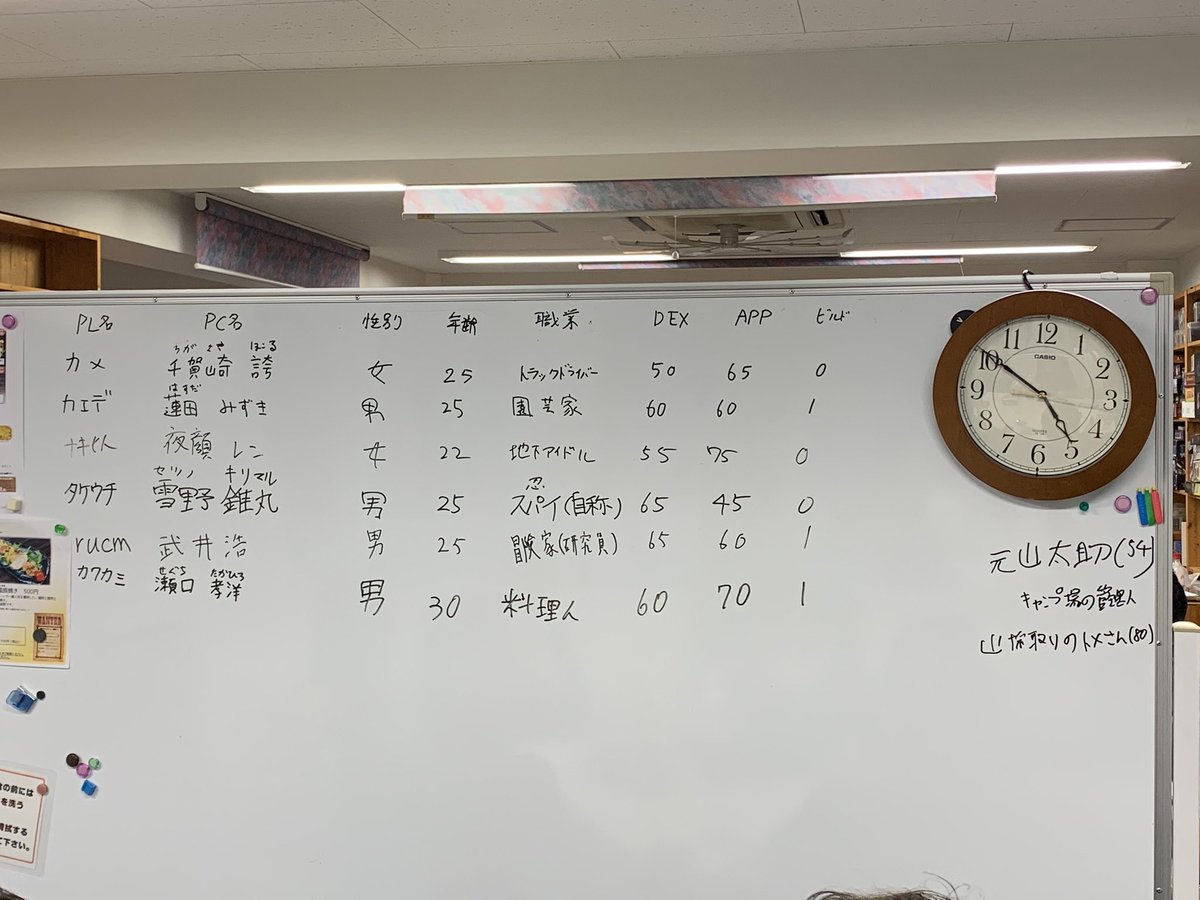 PL名 PC名 性別 年齢 職業 DEX APP ビルド
ちがさき ほこる
カメ 千賀崎 誇 女 25 トラックドライバー 50 65 0
はすだ
カエデ 蓮田 みずき 男 25 園芸家 60 60 1
ナキヒト 夜顔 レン 女 22 地下アイドル 55 75 0
セツノ キリマル 忍
タケウチ 雪野 錐丸 男 25 スパイ(自称) 65 45 0
rucm 武井浩 男 25 冒険家(研究員) 65 60 1
せぐち たかひろ
カワカミ 瀬口 孝洋 男 30 料理人 60 70 1
12
11
10
9
8
7
6
5
4
3
2
1
CASIO
元山太助(54)
キャンプ場の管理人
山菜取りのトメさん(80)
500円
WANTED
の前には
を洗う
拭する
下さい。